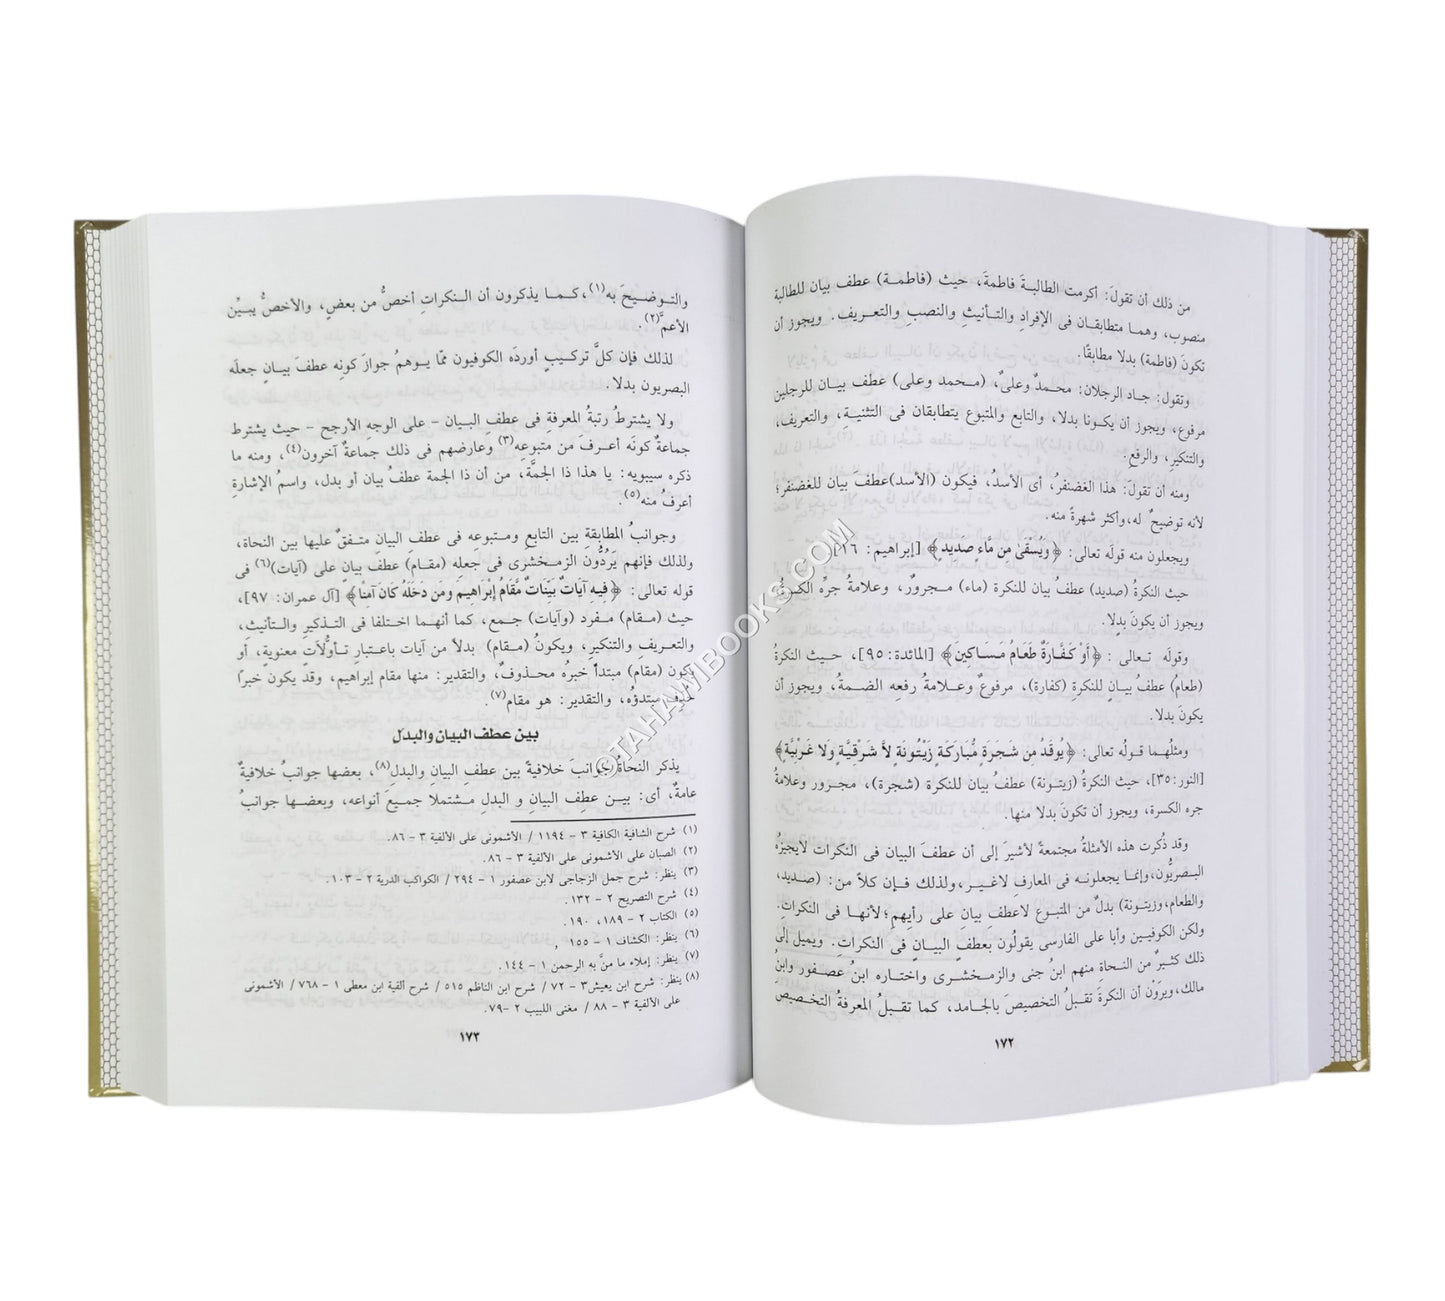 من ذلك أن تقولَ: أكرمت الطالبةَ فاطمةَ، حيث (فاطمـة) عطف بيان للطالبة
منصوب، وهما متطابقان فى الإفرادِ والتـأنيثِ والنصبِ والتعـريف. ويجوز أن
تكونَ (فاطمة) بدلا مطابقًا.
وتقول: جـاد الرجلان: محمـدٌ وعلىٌ، (مـحمد وعلى) عطف بيـان للرجلين
مرفوع، ويجوز أن يكـونا بدلا، والتابع والمتبوع يتطابقان فى التثنيـةِ، والتعريف،
والتنكير، والرفع.
ومنه أن تقولَ: هذا الغضنفرُ، أى الأسدُ، فيكون (الأسد)عطفَ بيان للغضنفرُ؛
لأنه توضيحٌ له،وأكثر شهرةً منه.
ويجعلون منه قولَه تعالى: ﴿ وَيُسْقَىٰ مِن مَّاءٍ صَدِيدٍ ﴾ [إبراهيم: ١٦]
حيث النكرةُ (صديد) عطفُ بيان للنكرة (ماء) مـجرورٌ، وعلامةُ جرِّه الكسرةُ،
ويجوز أن يكونَ بدلا.
وقولَه تـعالى : ﴿ أَوْ كَفَّارَةٌ طَعَامُ مَسَاكِينَ ﴾ [المائدة: ٩٥]، حيـث النكرةُ
(طعامُ) عطفُ بيـانٍ للنكرةِ (كفارة)، مرفوعٌ وعـلامةُ رفعِـه الضمـةُ، ويجوز أن
يكونَ بدلا.
ومثلُهـا قـولُه تعالى: ﴿ يُوقَدُ مِن شَجَرَةٍ مُّبَارَكَةٍ زَيْتُونَةٍ لاَّ شَرْقِيَّةٍ وَلا غَرْبِيَّةٍ ﴾
[النور: ٣٥]، حيث النكرةُ (زيتونة) عطفُ بيـان للنكرة (شجرة)، مجـرور وعلامةُ
جره الكسرة، ويجوز أن تكونَ بدلا منها.
وقد ذكرت هذه الأمثلةُ مجتمعةً لأشيرَ إلى أن عطفَ البيان فى النكرات لايجيزهُ
البصريُّون،وإنما يجعلونـه فى المعارفِ لاغيـر،ولذلك فـإن كلاً من: (صـديد،
والطعام،وزيتونة) بدلٌ من المتبوع لاعطف بيانٍ على رأيهمِ؛لأنهـا فى النكراتِ.
ولكن الكوفيـين وأبا على الفارسى يقولُون بَعطفِ البيـانِ فى النكراتِ. ويميل إلىَ
ذلك كثيـرٌ من النحاةِ منهم ابنُ جنى والزمخشرى واختاره ابنُ عصفور وابن
مالك،ويروْن أن النكرةَ تقبـلُ التخصيصَ بالجامد، كما تقبـلُ المعرفةُ التخصيصَ
١٧٢
والتـوضـيحَ به(١)،كـمـا يذكرون أن الـنكراتِ أخصُّ من بعضٍ، والأخصُّ يبيِّن
الأعمَّ(٢).
لذلك فإن كلَّ تركيـبٍ أوردَه الكوفيون ممَّا يـوهمُ جوازَ كونِه عطفَ بيـانٍ جعلَه
البصريون بدلا.
ولا يشترطُ رتبةُ المعرفةِ فى عطفِ البـيان - على الوجهِ الأرجحِ - حيث يشترط
جماعةٌ كونَه أعرفَ من متبوعِه(٣) وعارضهم فى ذلك جماعةٌ آخرون(٤)، ومنه ما
ذكره سيبويه: يا هذا ذا الجمَّة، من أن ذا الجمة عطفُ بيان أو بدل، واسمُ الإشارةِ
أعرفُ منه(٥).
وجوانبُ المطابقةِ بين التابعِ ومتبوعِه فى عطفِ البيانِ متـفقٌ عليها بين النحاة،
ولذلك فإنهم يَرُدُّون الزمخشرى فى جعلِه (مقام) عطفَ بيان على (آيات)(٦) فى
قوله تعالى: ﴿ فِيهِ آيَاتٌ بَيِّنَاتٌ مَّقَامُ إِبْرَاهِيمَ وَمَن دَخَلَهُ كَانَ آمِنًا ﴾ [آل عمران: ٩٧]،
حيث (مـقام) مـفرد (وآيات) جمع، كما أنهـما اخـتلفا فى التـذكيرِ والتـأنيث،
والتعريف والتنكير، ويكونُ (مـقام) بدلاً من آيات باعتبارِ تـأولُّات معنويةٍ، أو
يكون (مقام) مبتدأً خبرُه محـذوفٌ، والتقدير: منها مقام إبراهيم، وقد يكون خبراً
حُذف مبتدؤه، والتقدير: هو مقام(٧).
بين عطف البيان والبدل
يذكر النحاةُ جوانبَ خلافيةً بين عطفِ البيانِ والبدل(٨)، بعضها جوانبُ خلافيةٌ
عامةٌ، أى: بيـن عطفِ البيانِ و البدلِ مشتملا جميـعَ أنواعه، وبعضهـا جوانبُ
(١) شرح الشافية الكافية ٣ - ١١٩٤ / الأشمونى على الألفية ٣ - ٨٦.
(٢) الصبان على الأشمونى على الألفية ٣ - ٨٦.
(٣) ينظر: شرح جمل الزجاجى لابن عصفور ١ - ٢٩٤ / الكواكب الدرية ٢ - ١٠٣.
(٤) شرح التصريح ٢ - ١٣٢.
(٥) الكتاب ٢ - ١٨٩، ١٩٠.
(٦) ينظر: الكشاف ١ - ١٥٥ ,
(٧) ينظر: إملاء ما منَّ به الرحمن ١ - ١٤٤.
(٨) ينظر: شرح ابن يعيش٣ - ٧٢ / شرح ابن الناظم ٥١٥ / شرح ألفية ابن معطى ١ - ٧٦٨ / الأشمونى
على الألفية ٣ - ٨٨ / مغنى اللبيب ٢ -٧٩.
١٧٣
©TAHAWIBOOKS.COM